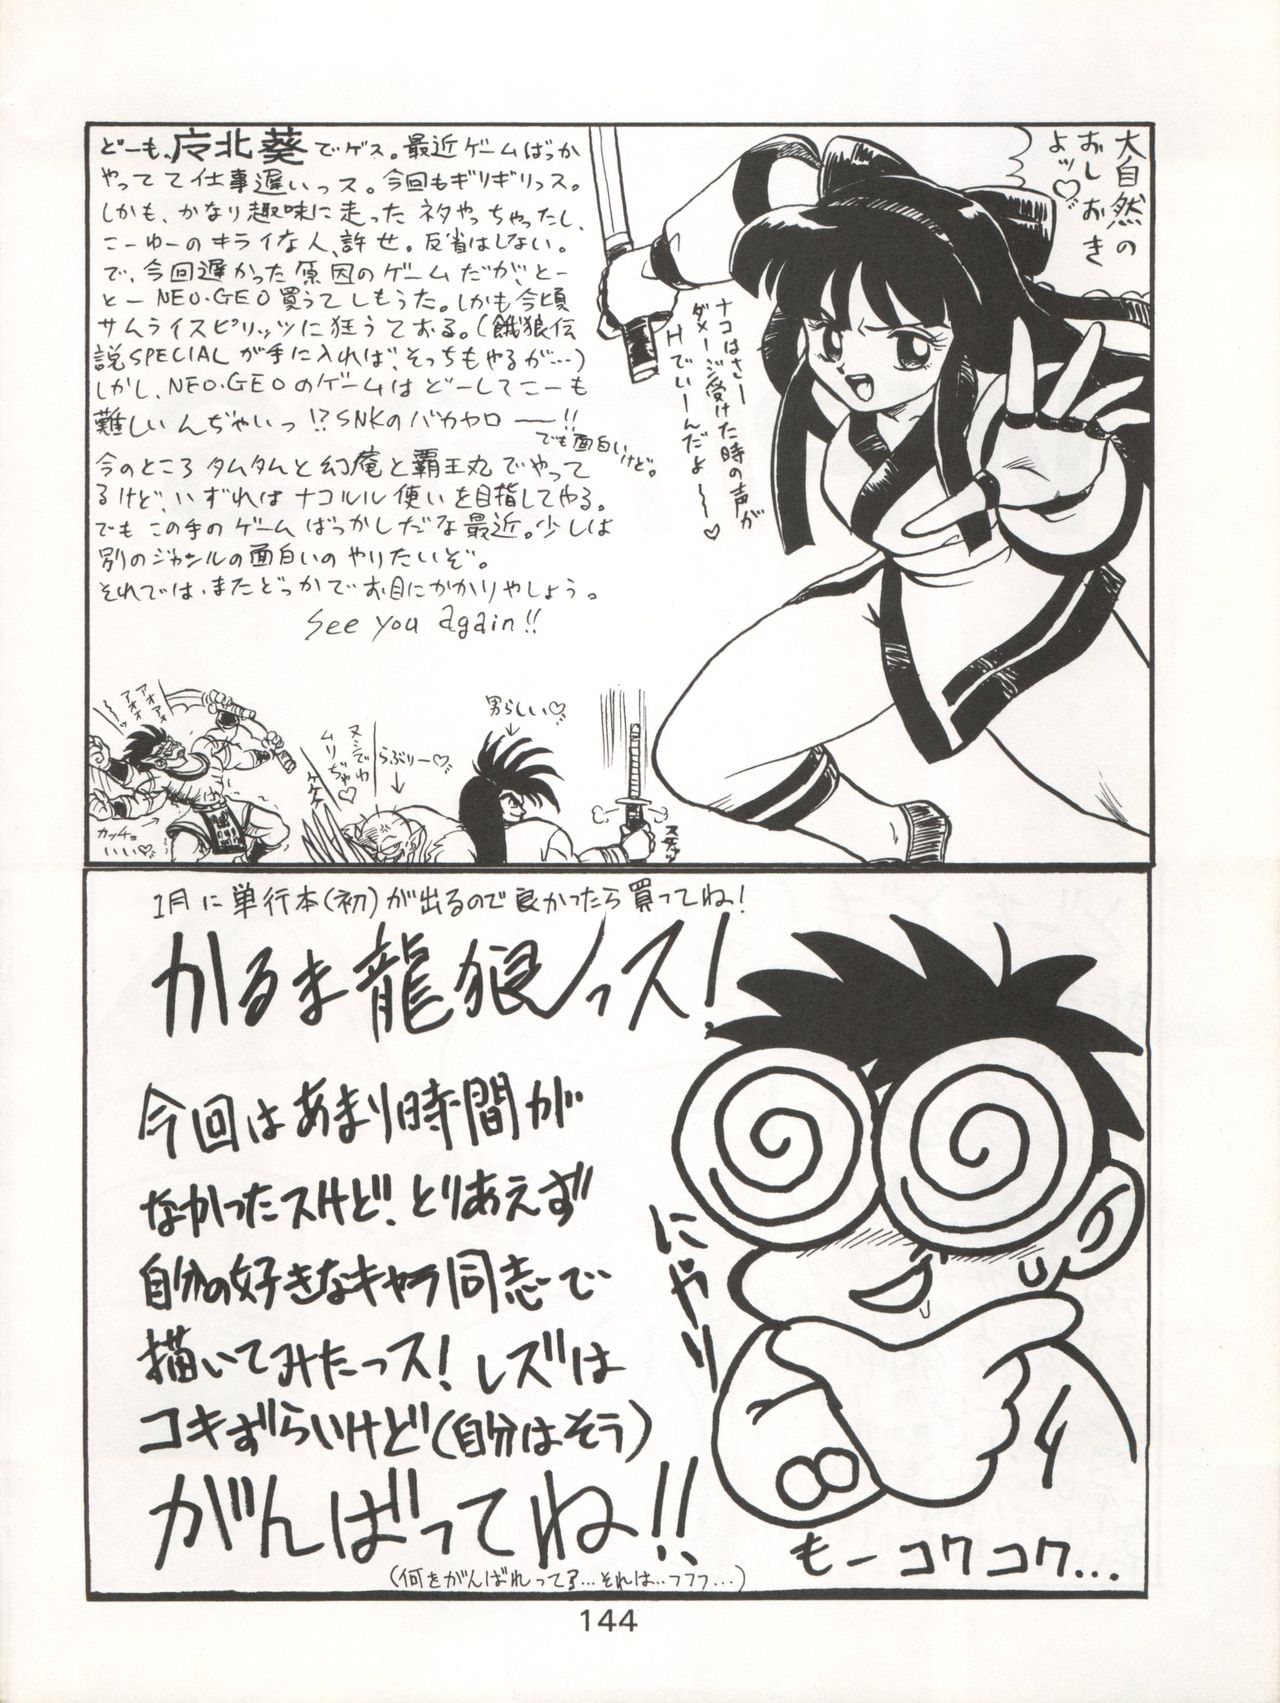 どーも、庁北葵でゲス。最近ゲームばっか
やってて仕事遅いっス。今回もギリギリっス。
しかも、かなり趣味に走ったネタやっちゃったし、
こーゆーのキライな人、許せ。反省はしない。
で、今回遅かった原因のゲームだが、とー
とー NEO・GEO買うてしもうた。しかも今頃
サムライスピリッツに狂うておる。(餓狼伝
説SPECIALが手に入れば、そっちもやるが…)
しかし、NEO・GEOのゲームはどーしてこーも
難しいんぢゃいっ!? SNKのバカヤロ——!!
でも面白いけど。
今のところタムタムと幻庵と覇王丸でやって
るけど、いずれはナコルル使いを目指してやる。
でもこの手のゲームばっかしだな最近。少しは
別のジャンルの面白いのやりたいぞ。
それでは、またどっかでお目にかかりやしょう。
See you again!!
大自然の
おしおき
よッ♡
ナコはさー
ダメージ受けた時の声が
Hでいーんだよ〜♡
アオアオ
カッチョ
いい♡
ヌシでわ
ムリぢゃ♡
ケケケ
らぶりー♡
男らしい♡
1月に単行本(初)が出るので良かったら買ってね!
かるま龍狼っス!
今回はあまり時間が
なかったスけど、とりあえず
自分の好きなキャラ同志で
描いてみたっス! レズは
コキずらいけど(自分はそう)
がんばってね!!
(何をがんばれって?…それは…フフフ…)
にやり
もーコワコワ…
144